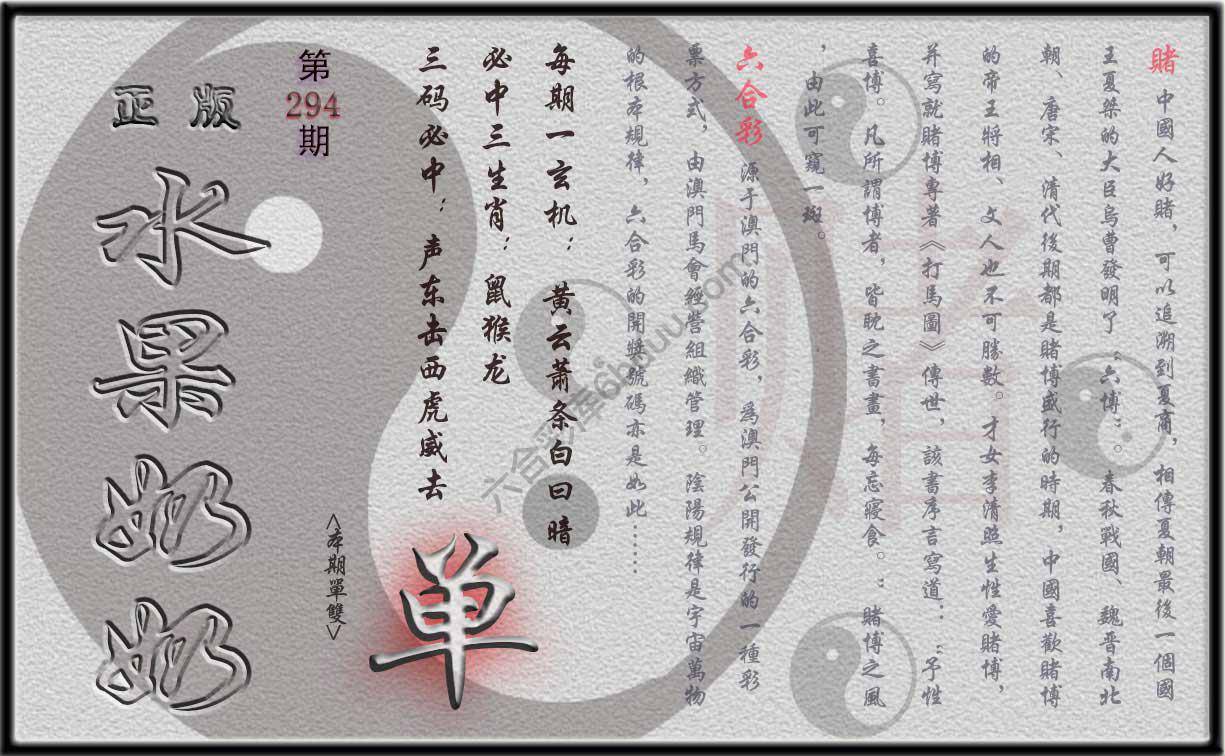 賭 中國人好賭，可以追溯到夏商，相傳夏朝最後一個國
王夏桀的大臣烏曹發明了“六博”。春秋戰國、魏晋南北
朝、唐宋、清代後期都是賭博盛行的時期，中國喜歡賭博
的帝王將相、文人也不可勝數。才女李清照生性愛賭博，
并寫就賭博專著《打馬圖》傳世，該書序言寫道：“予性
喜博。凡所謂博者，皆耽之書畫，每忘寢食。：賭博之風
，由此可窺一斑。
六合彩 源于澳門的六合彩，爲澳門公開發行的一種彩
票方式，由澳門馬會經營組織管理。陰陽規律是宇宙萬物
的根本規律，六合彩的開獎號碼亦是如此……
每期一玄机：黄云萧条白曰暗
必中三生肖：鼠猴龙
三码必中：声东击西虎威去
第
294
期
<本期單雙>
单
正版
水果奶奶
六合彩库6hduu.com